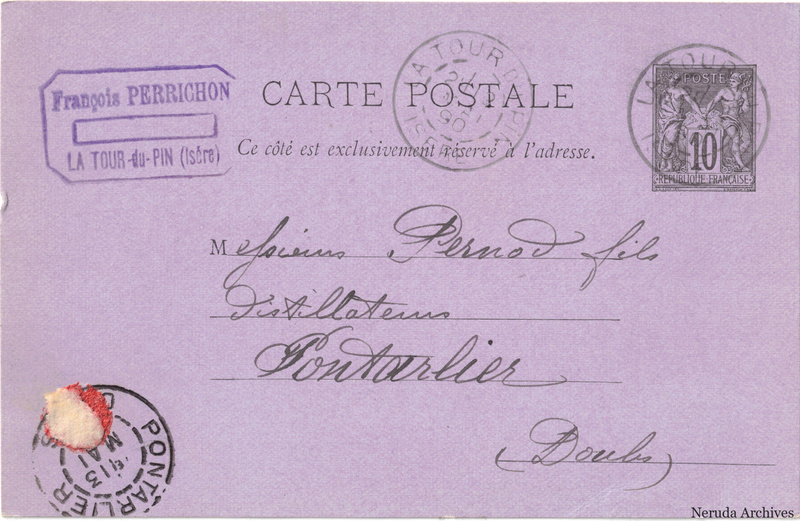 François PERRICHON
LA TOUR-du-PIN (Isère)
LA TOUR DU PIN
90
ISÈRE
CARTE POSTALE
Ce côté est exclusivement réservé à l'adresse.
POSTE
10
REPUBLIQUE FRANÇAISE
LA TOUR
Messieurs Pernod fils
distillateurs
Pontarlier
Doubs
PONTARLIER
13
MAI
Neruda Archives